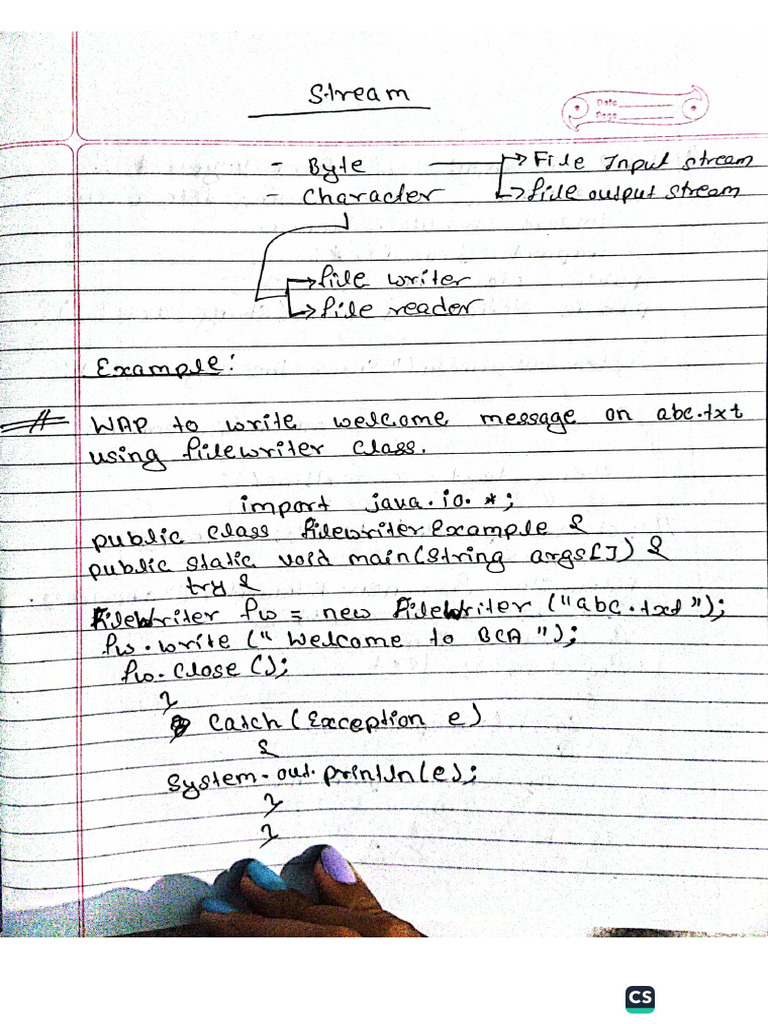 Stream
Date
Page
- Byte → File Input stream
- Character → file output stream
→ file writer
→ file reader
Example:
# WAP to write welcome message on abc.txt
using filewriter class.
import java.io.*;
public class filewriterExample {
public static void main(String args[]) {
try {
FileWriter fw = new FileWriter ("abc.txt");
fw.write (" Welcome to BCA ");
fw.close ();
}
catch (Exception e)
{
System.out.println(e);
}
}
CS